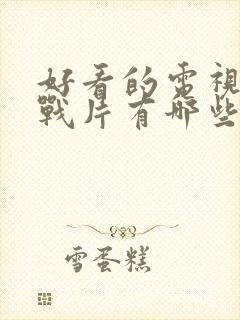 好看的電視
戰片有哪些
雪蛋糕